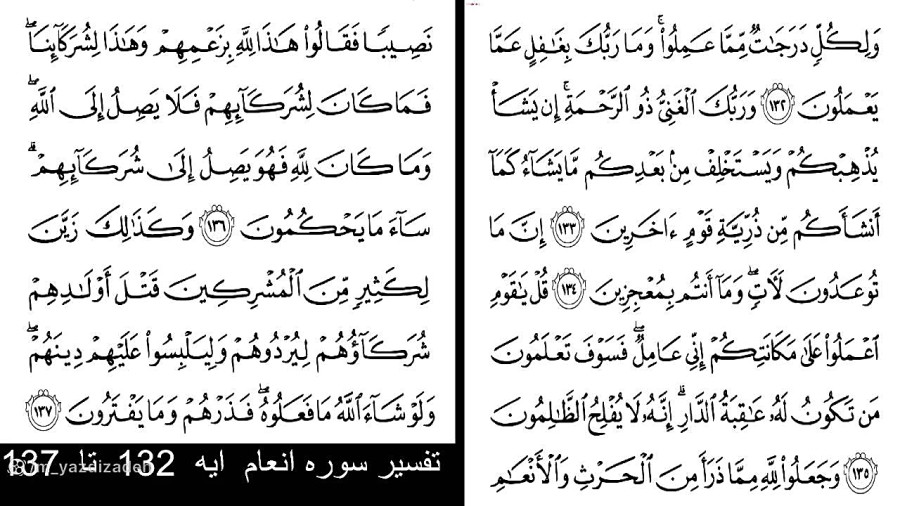 وَلِكُلٍّ دَرَجَٰتٌ مِّمَّا عَمِلُوا۟ ۚ وَمَا رَبُّكَ بِغَٰفِلٍ عَمَّا
يَعْمَلُونَ ١٣٢ وَرَبُّكَ ٱلْغَنِىُّ ذُو ٱلرَّحْمَةِ ۚ إِن يَشَأْ
يُذْهِبْكُمْ وَيَسْتَخْلِفْ مِنۢ بَعْدِكُم مَّا يَشَآءُ كَمَآ
أَنشَأَكُم مِّن ذُرِّيَّةِ قَوْمٍ ءَاخَرِينَ ١٣٣ إِنَّ مَا
تُوعَدُونَ لَءَاتٍ ۖ وَمَآ أَنتُم بِمُعْجِزِينَ ١٣٤ قُلْ يَٰقَوْمِ
ٱعْمَلُوا۟ عَلَىٰ مَكَانَتِكُمْ إِنِّى عَامِلٌ ۖ فَسَوْفَ تَعْلَمُونَ
مَن تَكُونُ لَهُۥ عَٰقِبَةُ ٱلدَّارِ ۗ إِنَّهُۥ لَا يُفْلِحُ ٱلظَّٰلِمُونَ
١٣٥ وَجَعَلُوا۟ لِلَّهِ مِمَّا ذَرَأَ مِنَ ٱلْحَرْثِ وَٱلْأَنْعَٰمِ
نَصِيبًا فَقَالُوا۟ هَٰذَا لِلَّهِ بِزَعْمِهِمْ وَهَٰذَا لِشُرَكَآئِنَا ۖ
فَمَا كَانَ لِشُرَكَآئِهِمْ فَلَا يَصِلُ إِلَى ٱللَّهِ ۖ
وَمَا كَانَ لِلَّهِ فَهُوَ يَصِلُ إِلَىٰ شُرَكَآئِهِمْ ۗ
سَآءَ مَا يَحْكُمُونَ ١٣٦ وَكَذَٰلِكَ زَيَّنَ
لِكَثِيرٍ مِّنَ ٱلْمُشْرِكِينَ قَتْلَ أَوْلَٰدِهِمْ
شُرَكَآؤُهُمْ لِيُرْدُوهُمْ وَلِيَلْبِسُوا۟ عَلَيْهِمْ دِينَهُمْ ۖ
وَلَوْ شَآءَ ٱللَّهُ مَا فَعَلُوهُ ۖ فَذَرْهُمْ وَمَا يَفْتَرُونَ ١٣٧
تفسیر سوره انعام ایه 132 تا 137
m_yazdizadeh